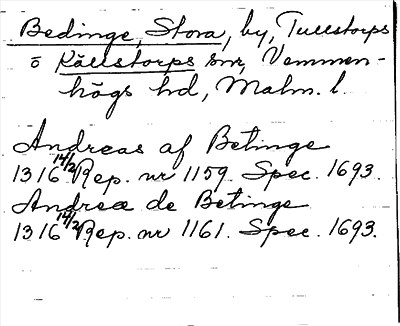 Bedinge, Stora, by, Tullstorps
o Källstorps snr, Vemmen-
högs hd, Malm. l.
Andreas af Betinge
1316 14/2 Rep. nr 1159. Spec. 1693.
Andree de Betinge
1316 14/2 Rep. nr 1161. Spec. 1693.